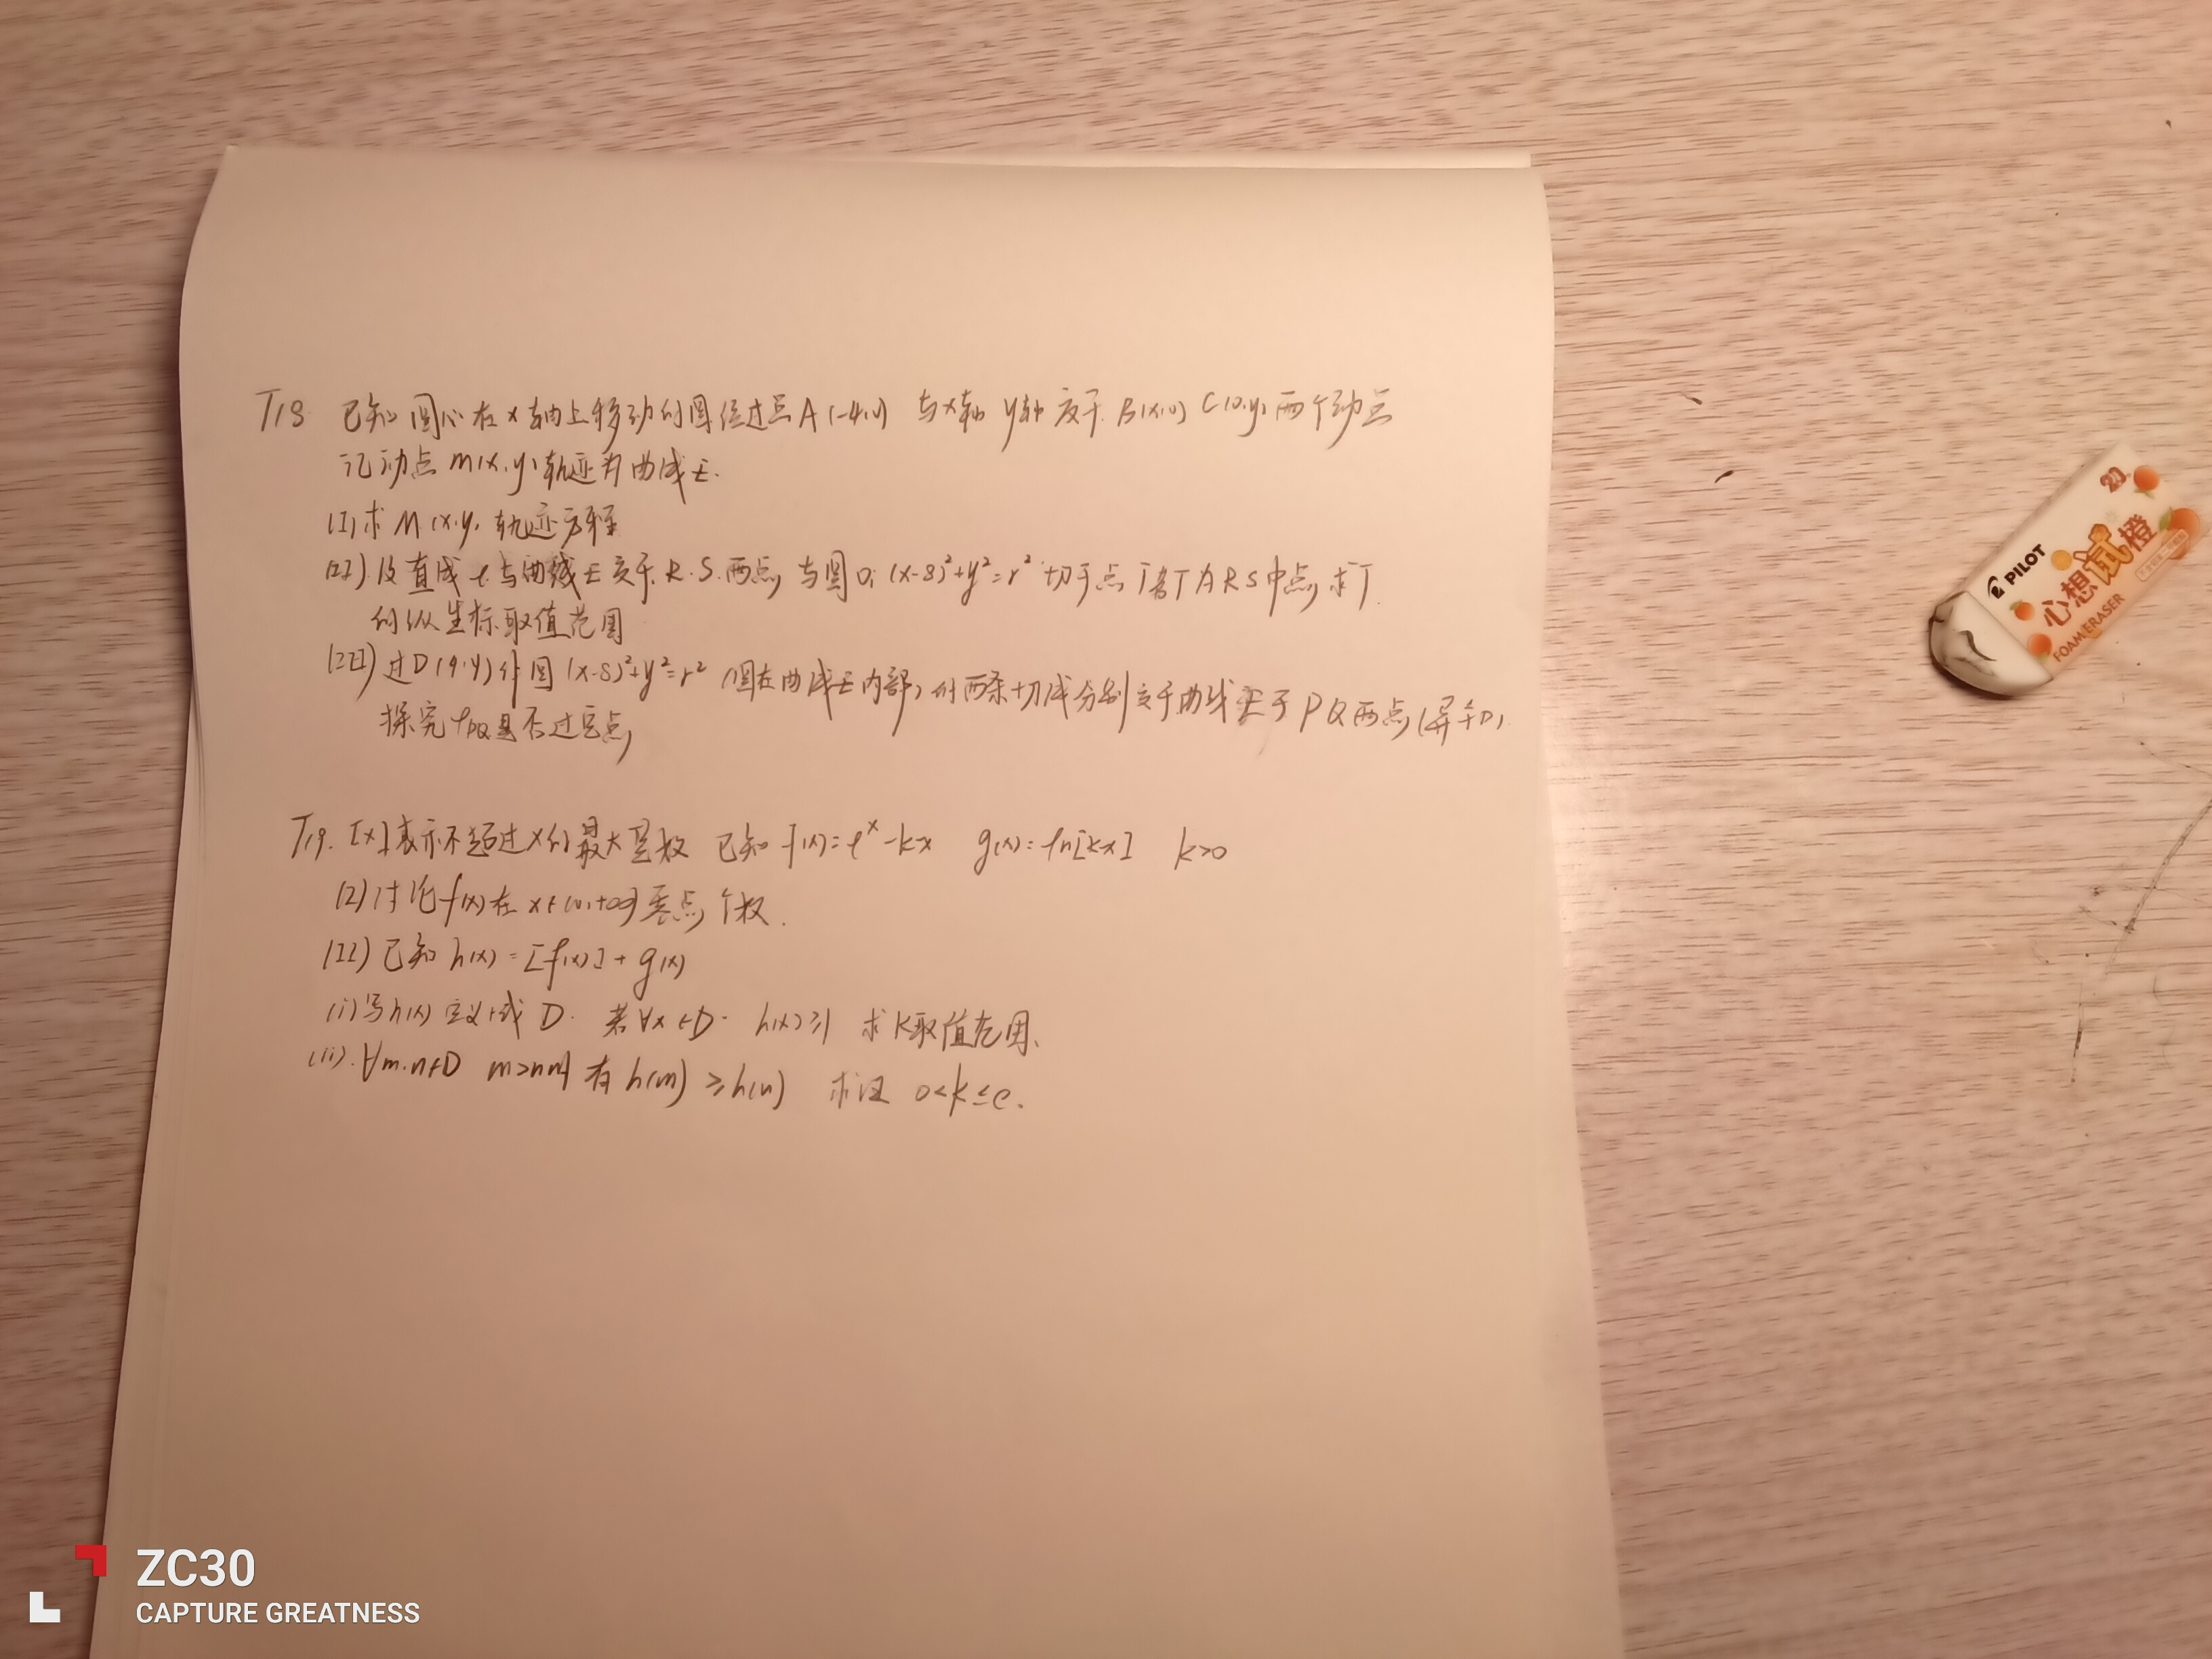 T18 已知圆心在x轴上移动的圆经过点A(-4,0) 与x轴 y轴交于B(x,0) C(0,y)两个动点
记动点M(x,y)轨迹为曲线E.
(I)求M(x,y)轨迹方程
(II).设直线l与曲线E交于R.S.两点,与圆O:(x-8)²+y²=r²切于点T若T为RS中点,求T
的纵坐标取值范围
(III)过D(4,4)作圆(x-8)²+y²=r²(圆在曲线E内部)的两条切线分别交于曲线E于PQ两点(异于D)
探究lPQ是否过定点
T19.[x]表示不超过x的最大整数 已知f(x)=e^x-kx g(x)=ln[kx] k>0
(I)讨论f(x)在x∈(0,+∞)零点个数.
(II)已知h(x)=[f(x)]+g(x)
(i)写h(x)定义域D. 若∀x∈D. h(x)≥1 求k取值范围.
(ii).∀m.n∈D m>n时有h(m)≥h(n) 求证 0<k≤e.
PILOT
心想试橙
FOAM ERASER
ZC30
CAPTURE GREATNESS